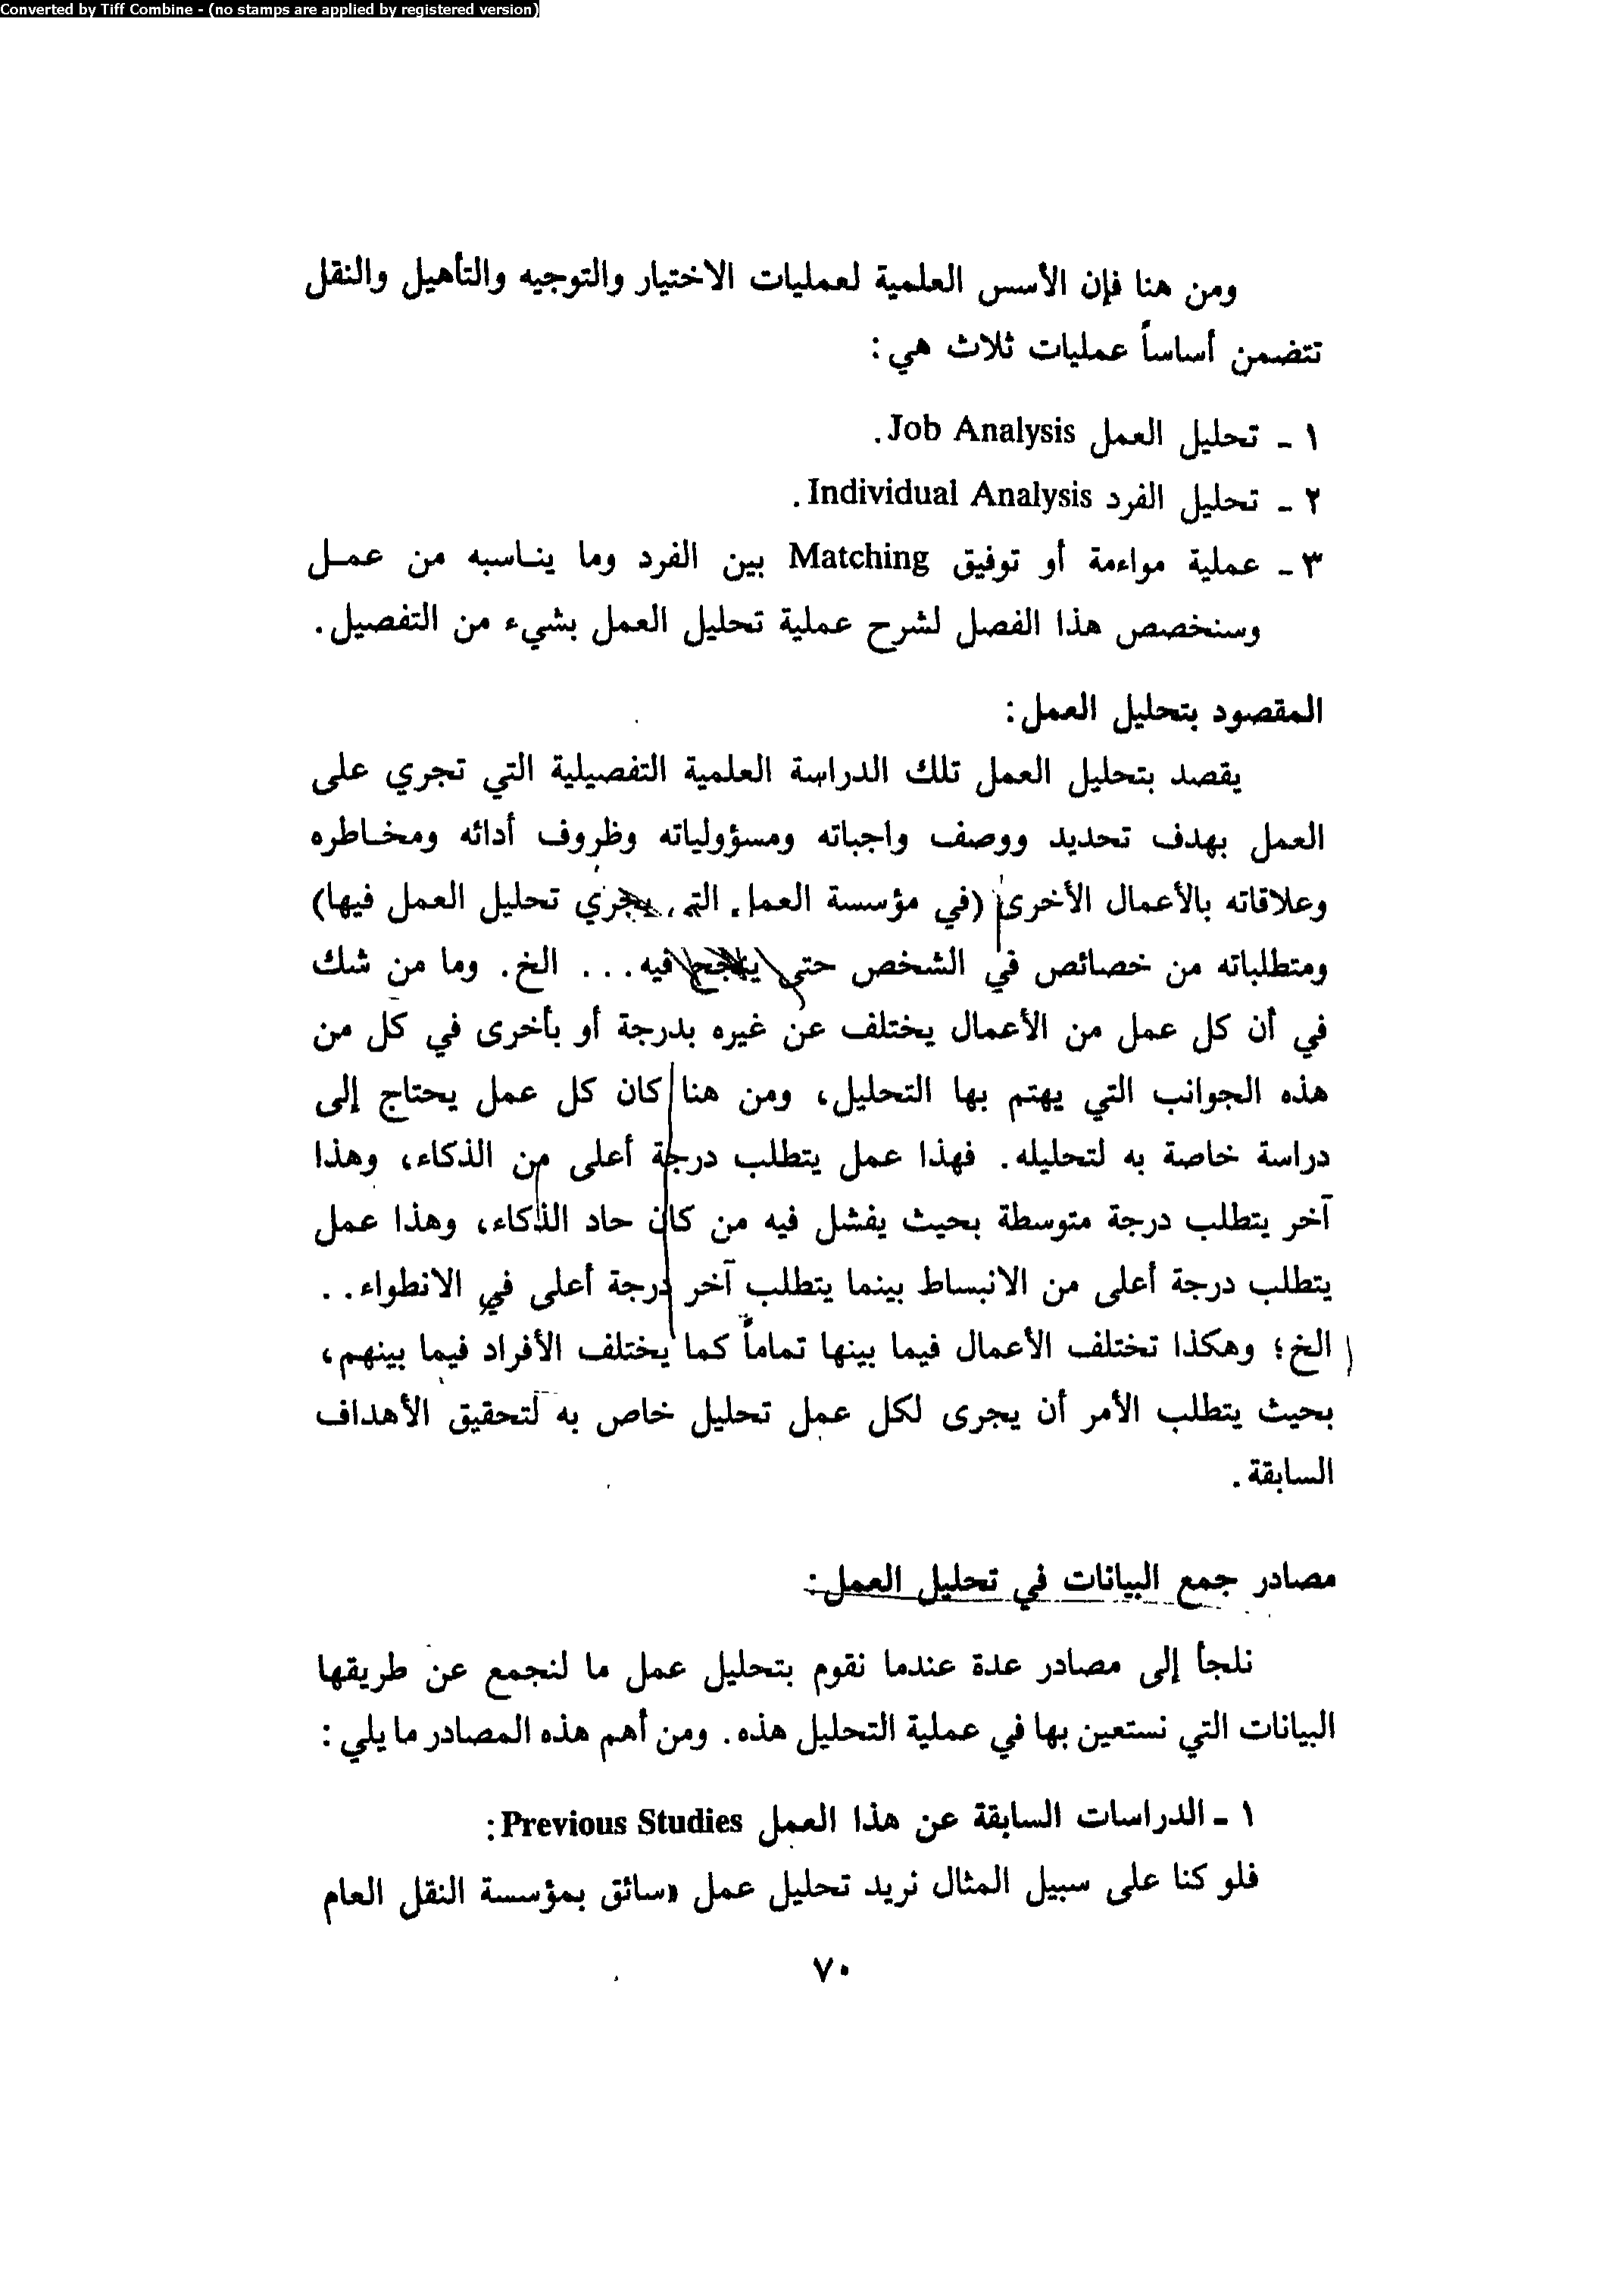 Converted by Tiff Combine - (no stamps are applied by registered version)
ومن هنا فإن الأسس العلمية لعمليات الاختيار والتوجيه والتأهيل والنقل
تتضمن أساساً عمليات ثلاث هي:
١ ـ تحليل العمل Job Analysis.
٢ ـ تحليل الفرد Individual Analysis.
٣ ـ عملية مواءمة أو توفيق Matching بين الفرد وما يناسبه من عمل
وسنخصص هذا الفصل لشرح عملية تحليل العمل بشيء من التفصيل.
المقصود بتحليل العمل:
يقصد بتحليل العمل تلك الدراسة العلمية التفصيلية التي تجري على
العمل بهدف تحديد ووصف واجباته ومسؤولياته وظروف أدائه ومخاطره
وعلاقاته بالأعمال الأخرى (في مؤسسة العمل التي يجري تحليل العمل فيها)
ومتطلباته من خصائص في الشخص حتى ينجح فيه... الخ. وما من شك
في أن كل عمل من الأعمال يختلف عن غيره بدرجة أو بأخرى في كل من
هذه الجوانب التي يهتم بها التحليل، ومن هنا كان كل عمل يحتاج إلى
دراسة خاصة به لتحليله. فهذا عمل يتطلب درجة أعلى من الذكاء، وهذا
آخر يتطلب درجة متوسطة بحيث يفشل فيه من كان حاد الذكاء، وهذا عمل
يتطلب درجة أعلى من الانبساط بينما يتطلب آخر درجة أعلى في الانطواء..
الخ؛ وهكذا تختلف الأعمال فيما بينها تماماً كما يختلف الأفراد فيما بينهم،
بحيث يتطلب الأمر أن يجرى لكل عمل تحليل خاص به لتحقيق الأهداف
السابقة.
مصادر جمع البيانات في تحليل العمل:
نلجأ إلى مصادر عدة عندما نقوم بتحليل عمل ما لنجمع عن طريقها
البيانات التي نستعين بها في عملية التحليل هذه. ومن أهم هذه المصادر ما يلي:
١ ـ الدراسات السابقة عن هذا العمل Previous Studies:
فلو كنا على سبيل المثال نريد تحليل عمل «سائق بمؤسسة النقل العام
٧٠